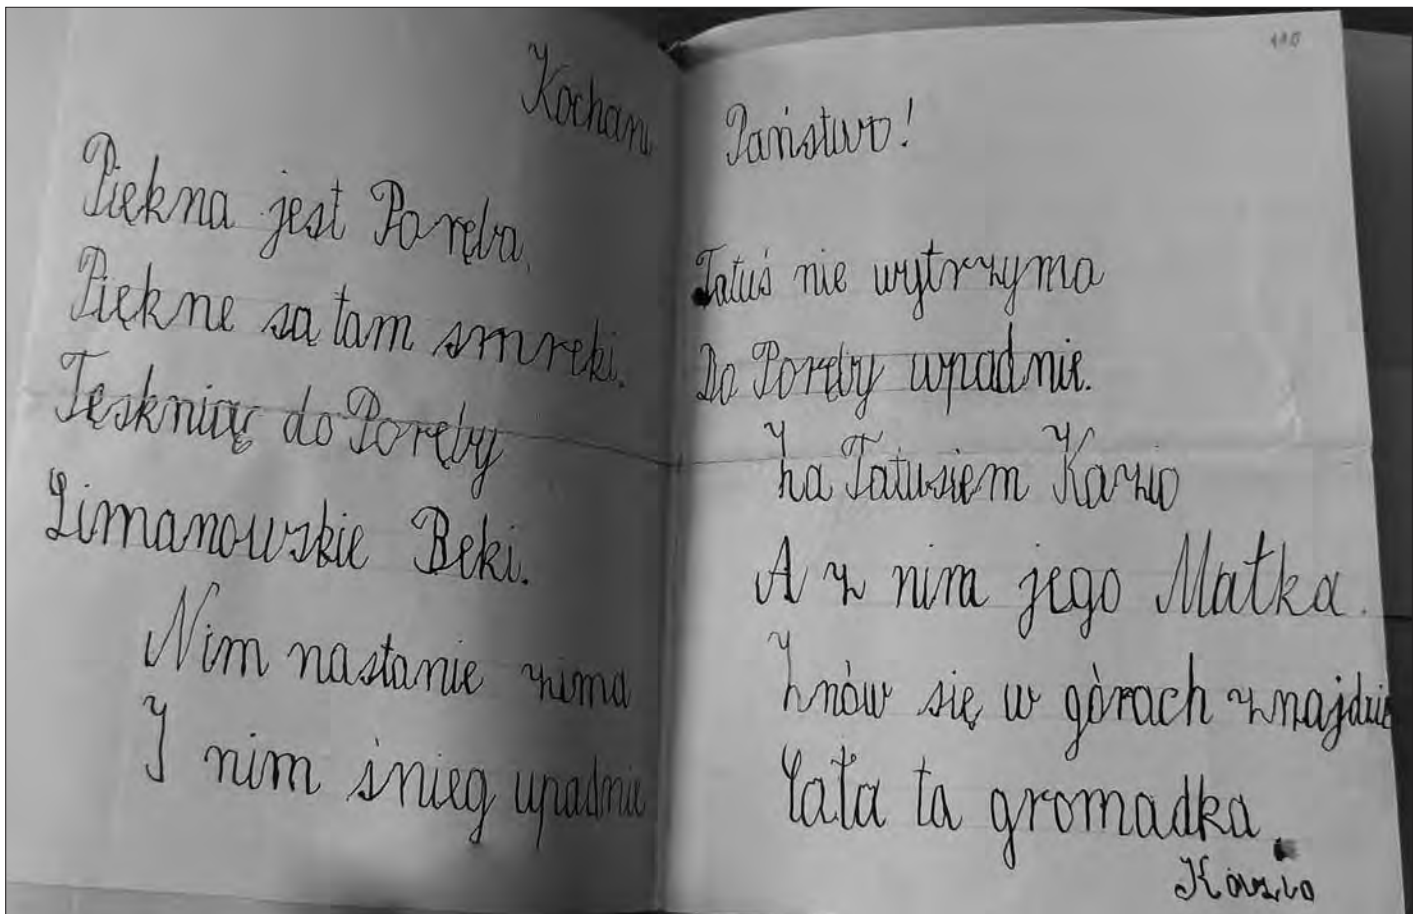 Kochani Państwo!
Piękna jest Poręba,
Piękne są tam smreki.
Tęsknią do Poręby
Limanowskie Beki.
Nim nastanie zima
I nim śnieg upadnie
Tatuś nie wytrzyma
Do Poręby wpadnie.
Za Tatusiem Kazio
A z nim jego Matka.
Znów się w górach znajdzie
Cała ta gromadka.
Kazio